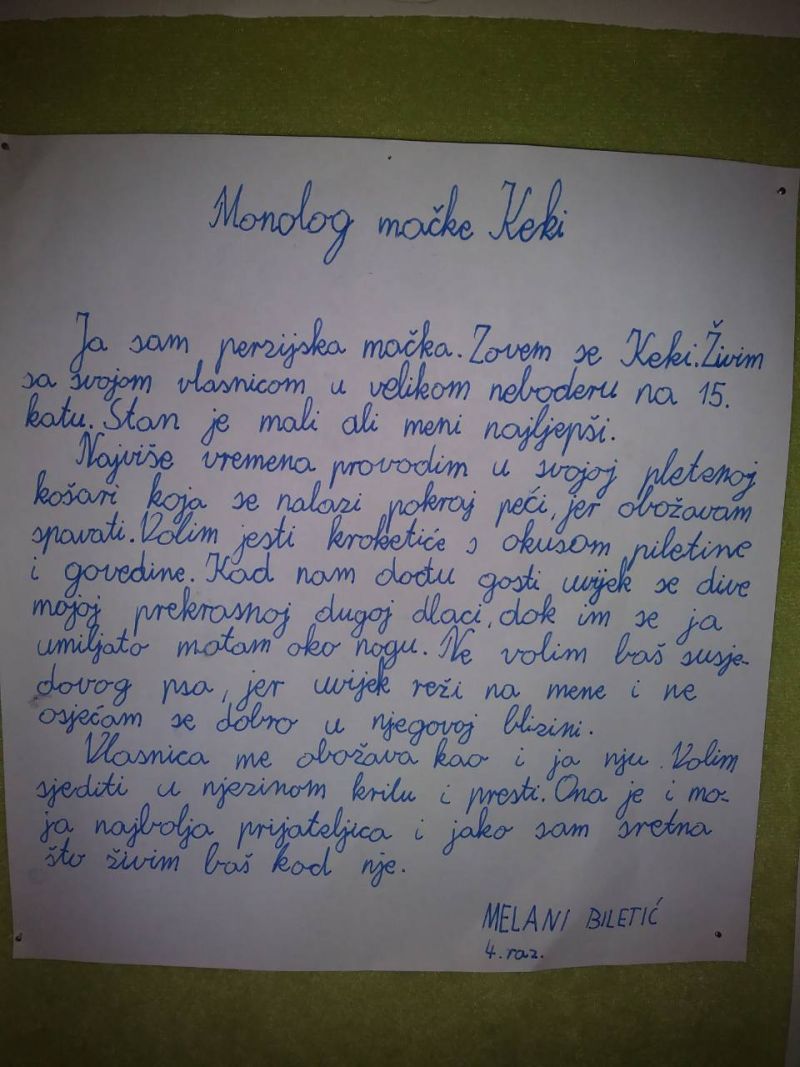 Monolog mačke Keki
Ja sam perzijska mačka. Zovem se Keki. Živim
sa svojom vlasnicom u velikom neboderu na 15.
katu. Stan je mali ali meni najljepši.
Najviše vremena provodim u svojoj pletenoj
košari koja se nalazi pokraj peći, jer obožavam
spavati. Volim jesti kroketiće s okusom piletine
i govedine. Kad nam dođu gosti uvijek se dive
mojoj prekrasnoj dugoj dlaci, dok im se ja
umiljato motam oko nogu. Ne volim baš susje-
dovog psa, jer uvijek reži na mene i ne
osjećam se dobro u njegovoj blizini.
Vlasnica me obožava kao i ja nju. Volim
sjediti u njezinom krilu i presti. Ona je i mo-
ja najbolja prijateljica i jako sam sretna
što živim baš kod nje.
MELANI BILETIĆ
4. raz.